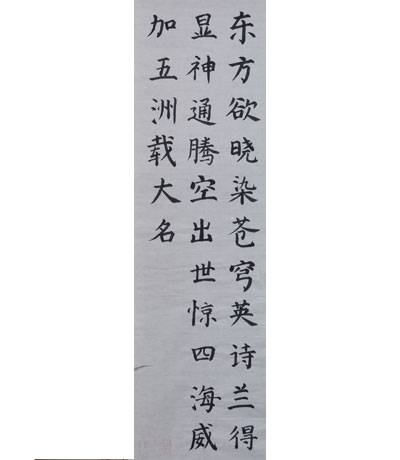 东方欲晓染苍穹英诗兰得
显神通腾空出世惊四海威
加五洲载大名